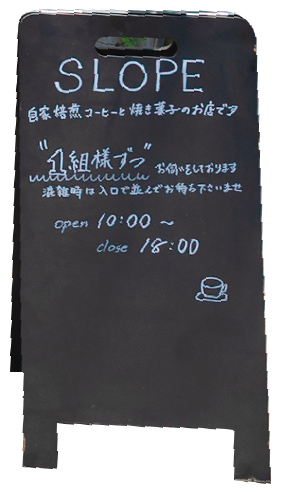 SLOPE
自家焙煎コーヒーと焼き菓子のお店です
"1組様ずつ" お伺いをしております
混雑時は入口で並んでお待ち下さいませ
open 10:00 ～
close 18:00